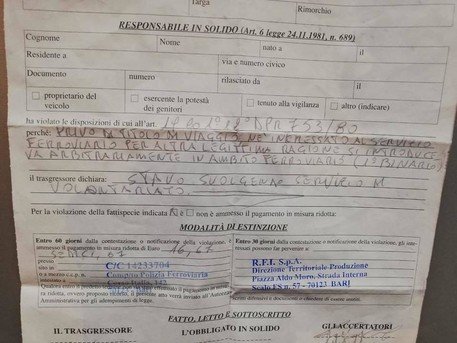 Targa
Rimorchio
RESPONSABILE IN SOLIDO (Art. 6 legge 24.11.1981, n. 689)
Cognome Nome nato a il
Residente a via e numero civico
Documento numero rilasciato da il
proprietario del veicolo esercente la potestà dei genitori tenuto alla vigilanza altro (indicare)
ha violato le disposizioni di cui all'art. DPR 753/80
perchè: PRIVO DI TITOLO DI VIAGGIO, NE' INTERESSATO AL SERVIZIO
FERROVIARIO PER ALTRA LEGITTIMA RAGIONE SI INTRODUCE
VA ARBITRARIAMENTE IN AMBITO FERROVIARIO (1° BINARIO)
il trasgressore dichiara: STAVO SVOLGENDO SERVIZIO DI
VOLONTARIATO.
Per la violazione della fattispecie indicata è non è ammesso il pagamento in misura ridotta:
MODALITÀ DI ESTINZIONE
Entro 60 giorni dalla contestazione o notificazione della violazione,
è ammesso il pagamento in misura ridotta di Euro 16,67
SEDICI,67
presso
sito in C/C 14233704
o a mezzo c.c.p. n. Compto Polizia Ferroviaria
intestato a Corso Italia, 142
Entro 30 giorni dalla contestazione o notificazione della violazione, gli interessati possono far pervenire a:
R.F.I. S.p.A.
Direzione Territoriale Produzione
Piazza Aldo Moro, Strada Interna
Scalo FS n. 57 - 70123 BARI
scritti difensivi e documenti o chiedere di essere sentiti.
FATTO, LETTO E SOTTOSCRITTO
IL TRASGRESSORE L'OBBLIGATO IN SOLIDO GLI ACCERTATORI